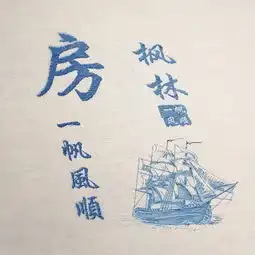 房
一帆風順
枫林
一帆風順